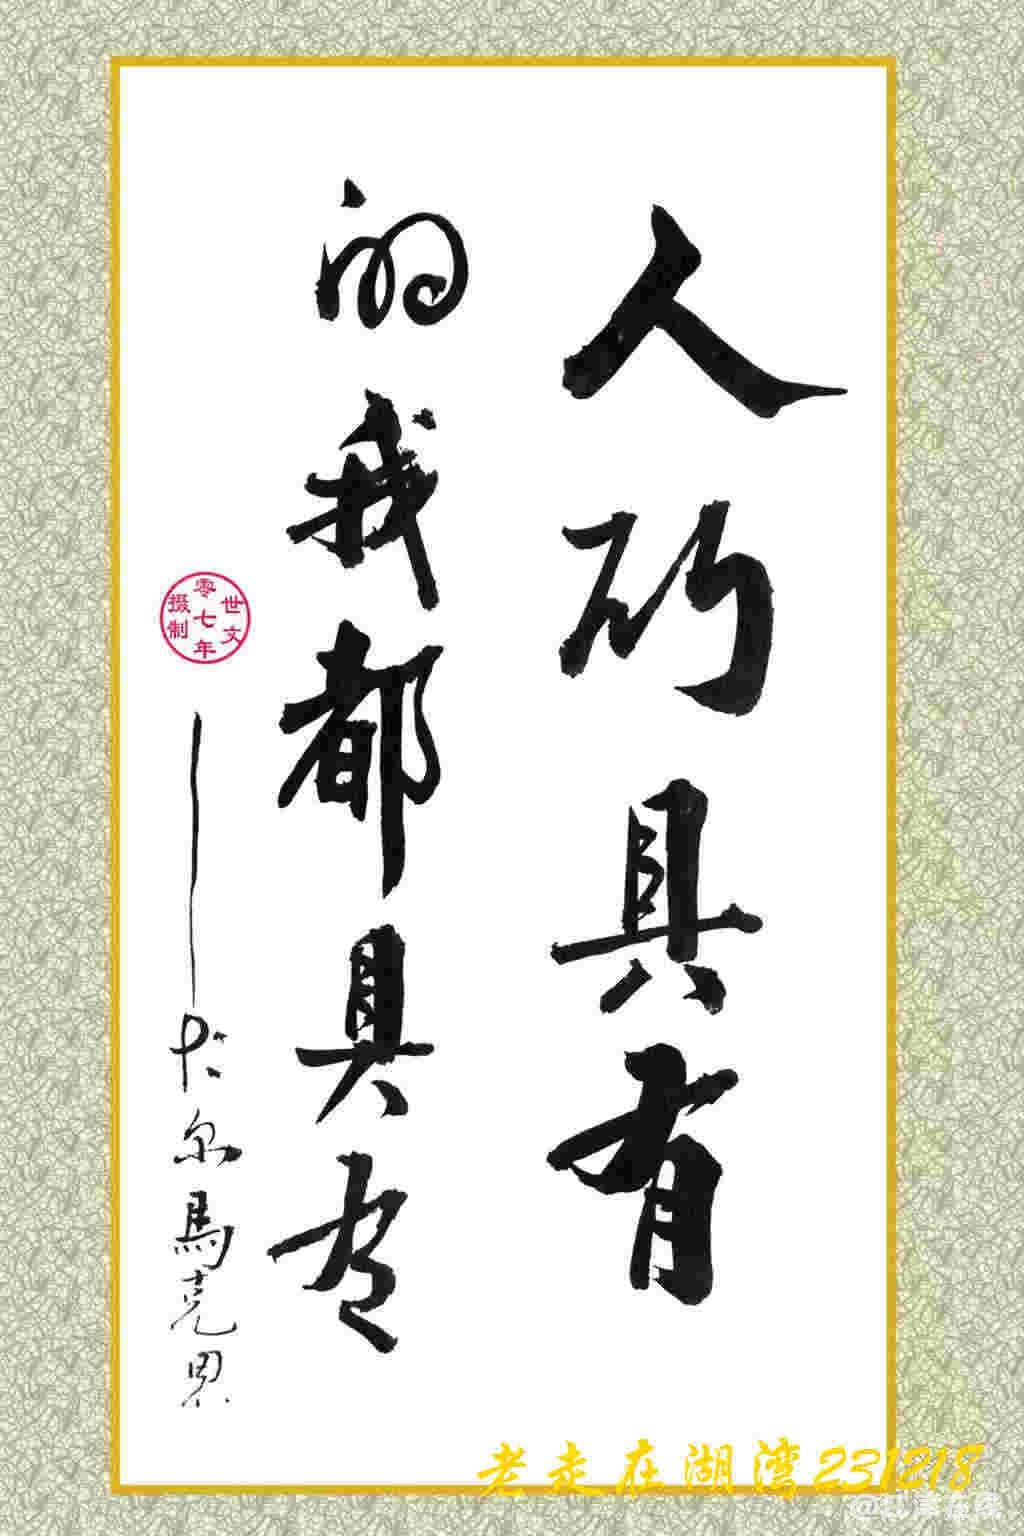 人所具有
的我都具有
——卡尔馬克思
世文
零七年
摄制
老走在湖湾231218